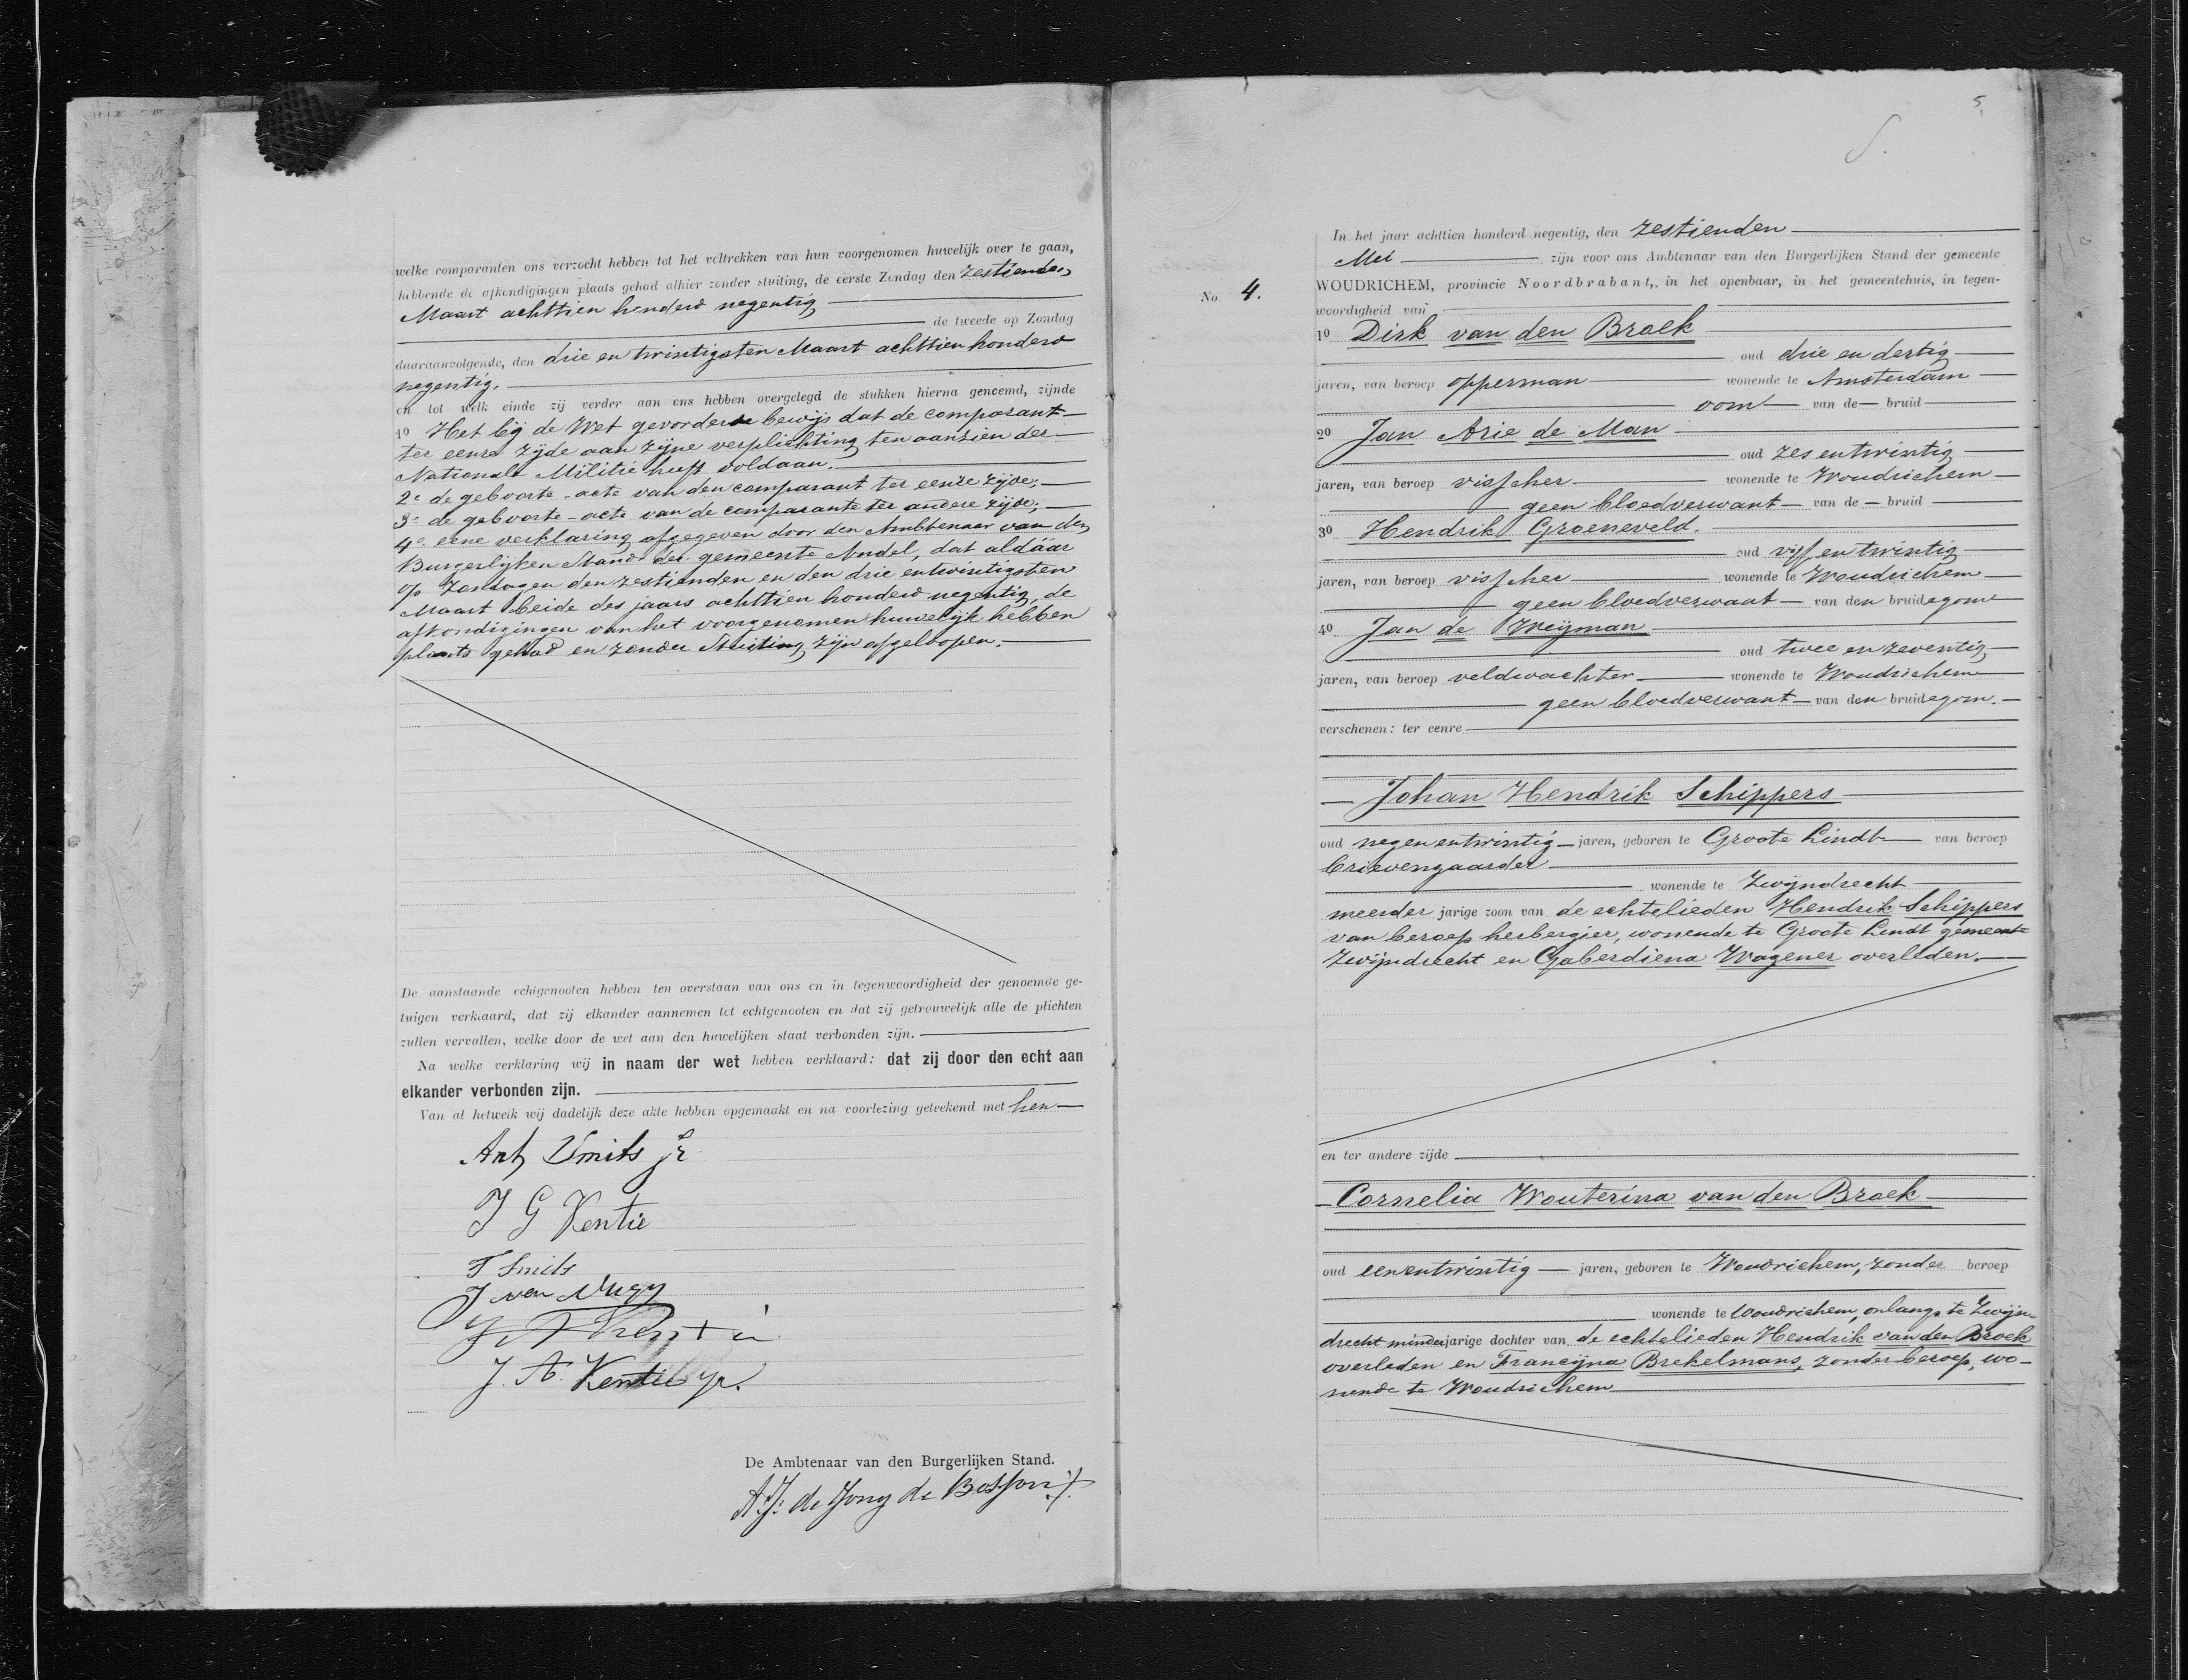 welke comparanten ons verzocht hebben tot het voltrekken van hun voorgenomen huwelijk over te gaan,
hebbende de afkondigingen plaats gehad alhier zonder stuiting, de eerste Zondag den zestienden
Maart achttien honderd negentig
de tweede op Zondag
daaraanvolgende, den drie en twintigsten Maart achttien honderd
negentig.
en tot welk einde zij verder aan ons hebben overgelegd de stukken hierna genoemd, zijnde
1o Het bij de Wet gevorderde bewijs dat de comparant
ter eenre zijde aan zijne verplichting ten aanzien der
Nationale Militie heeft voldaan.
2e de geboorte-acte van den comparant ter eenre zijde;
3e de geboorte-acte van de comparante ter andere zijde;
4e eene verklaring afgegeven door den Ambtenaar van den
Burgerlijken Stand der gemeente Andel, dat aldaar
op Zondagen den zestienden en den drie entwintigsten
Maart beide des jaars achttien honderd negentig, de
afkondigingen van het voorgenomen huwelijk hebben
plaats gehad en zonder Stuiting zijn afgeloopen.
De aanstaande echtgenooten hebben ten overstaan van ons en in tegenwoordigheid der genoemde ge-
tuigen verklaard, dat zij elkander aannemen tot echtgenooten en dat zij getrouwelijk alle de plichten
zullen vervullen, welke door de wet aan den huwelijken staat verbonden zijn.
Na welke verklaring wij in naam der wet hebben verklaard: dat zij door den echt aan
elkander verbonden zijn.
Van al hetwelk wij dadelijk deze akte hebben opgemaakt en na voorlezing geteekend met hen
Ant Smits jr
J G Kentie
T Smits
J van Vugy
Kentie
J. A. Kentie jr.
De Ambtenaar van den Burgerlijken Stand.
A J: de Jong de Bosson
5
5.
No. 4.
In het jaar achttien honderd negentig, den zestienden
Mei zijn voor ons Ambtenaar van den Burgerlijken Stand der gemeente
WOUDRICHEM, provincie Noordbrabant, in het openbaar, in het gemeentehuis, in tegen-
woordigheid van
1o Dirk van den Broek
oud drie en dertig
jaren, van beroep opperman wonende te Amsterdam
oom van de bruid
2o Jan Arie de Man
oud zes entwintig
jaren, van beroep visscher wonende te Woudrichem
geen bloedverwant van de bruid
3o Hendrik Groeneveld.
oud vijf en twintig
jaren, van beroep visscher wonende te Woudrichem
geen bloedverwant van den bruidegom
4o Jan de Weijman
oud twee en zeventig
jaren, van beroep veldwachter wonende te Woudrichem
geen bloedverwant van den bruidegom.
verschenen: ter eenre
Johan Hendrik Schippers
oud negen entwintig jaren, geboren te Groote Lindt van beroep
brievengaarder
wonende te Zwijndrecht
meerder jarige zoon van de echtelieden Hendrik Schippers
van beroep herbergier, wonende te Groote Lindt gemeente
Zwijndrecht en Gaberdiena Wagener overleden.
en ter andere zijde
Cornelia Wouterina van den Broek
oud een entwintig jaren, geboren te Woudrichem, zonder beroep
wonende te Woudrichem, onlangs te Zwijn-
drecht minderjarige dochter van de echtelieden Hendrik van den Broek
overleden en Francijna Brekelmans, zonder beroep, wo-
nende te Woudrichem